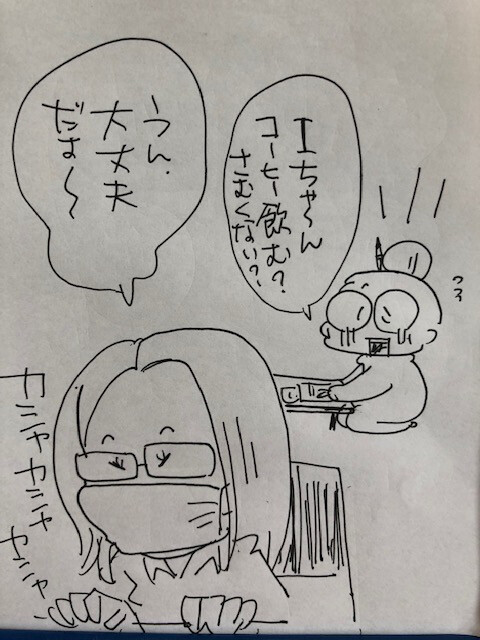 Iちゃ〜ん
コーヒー飲む?
さむくない?
うん.
大丈夫
だよ〜
カシャカシャ
カシャ